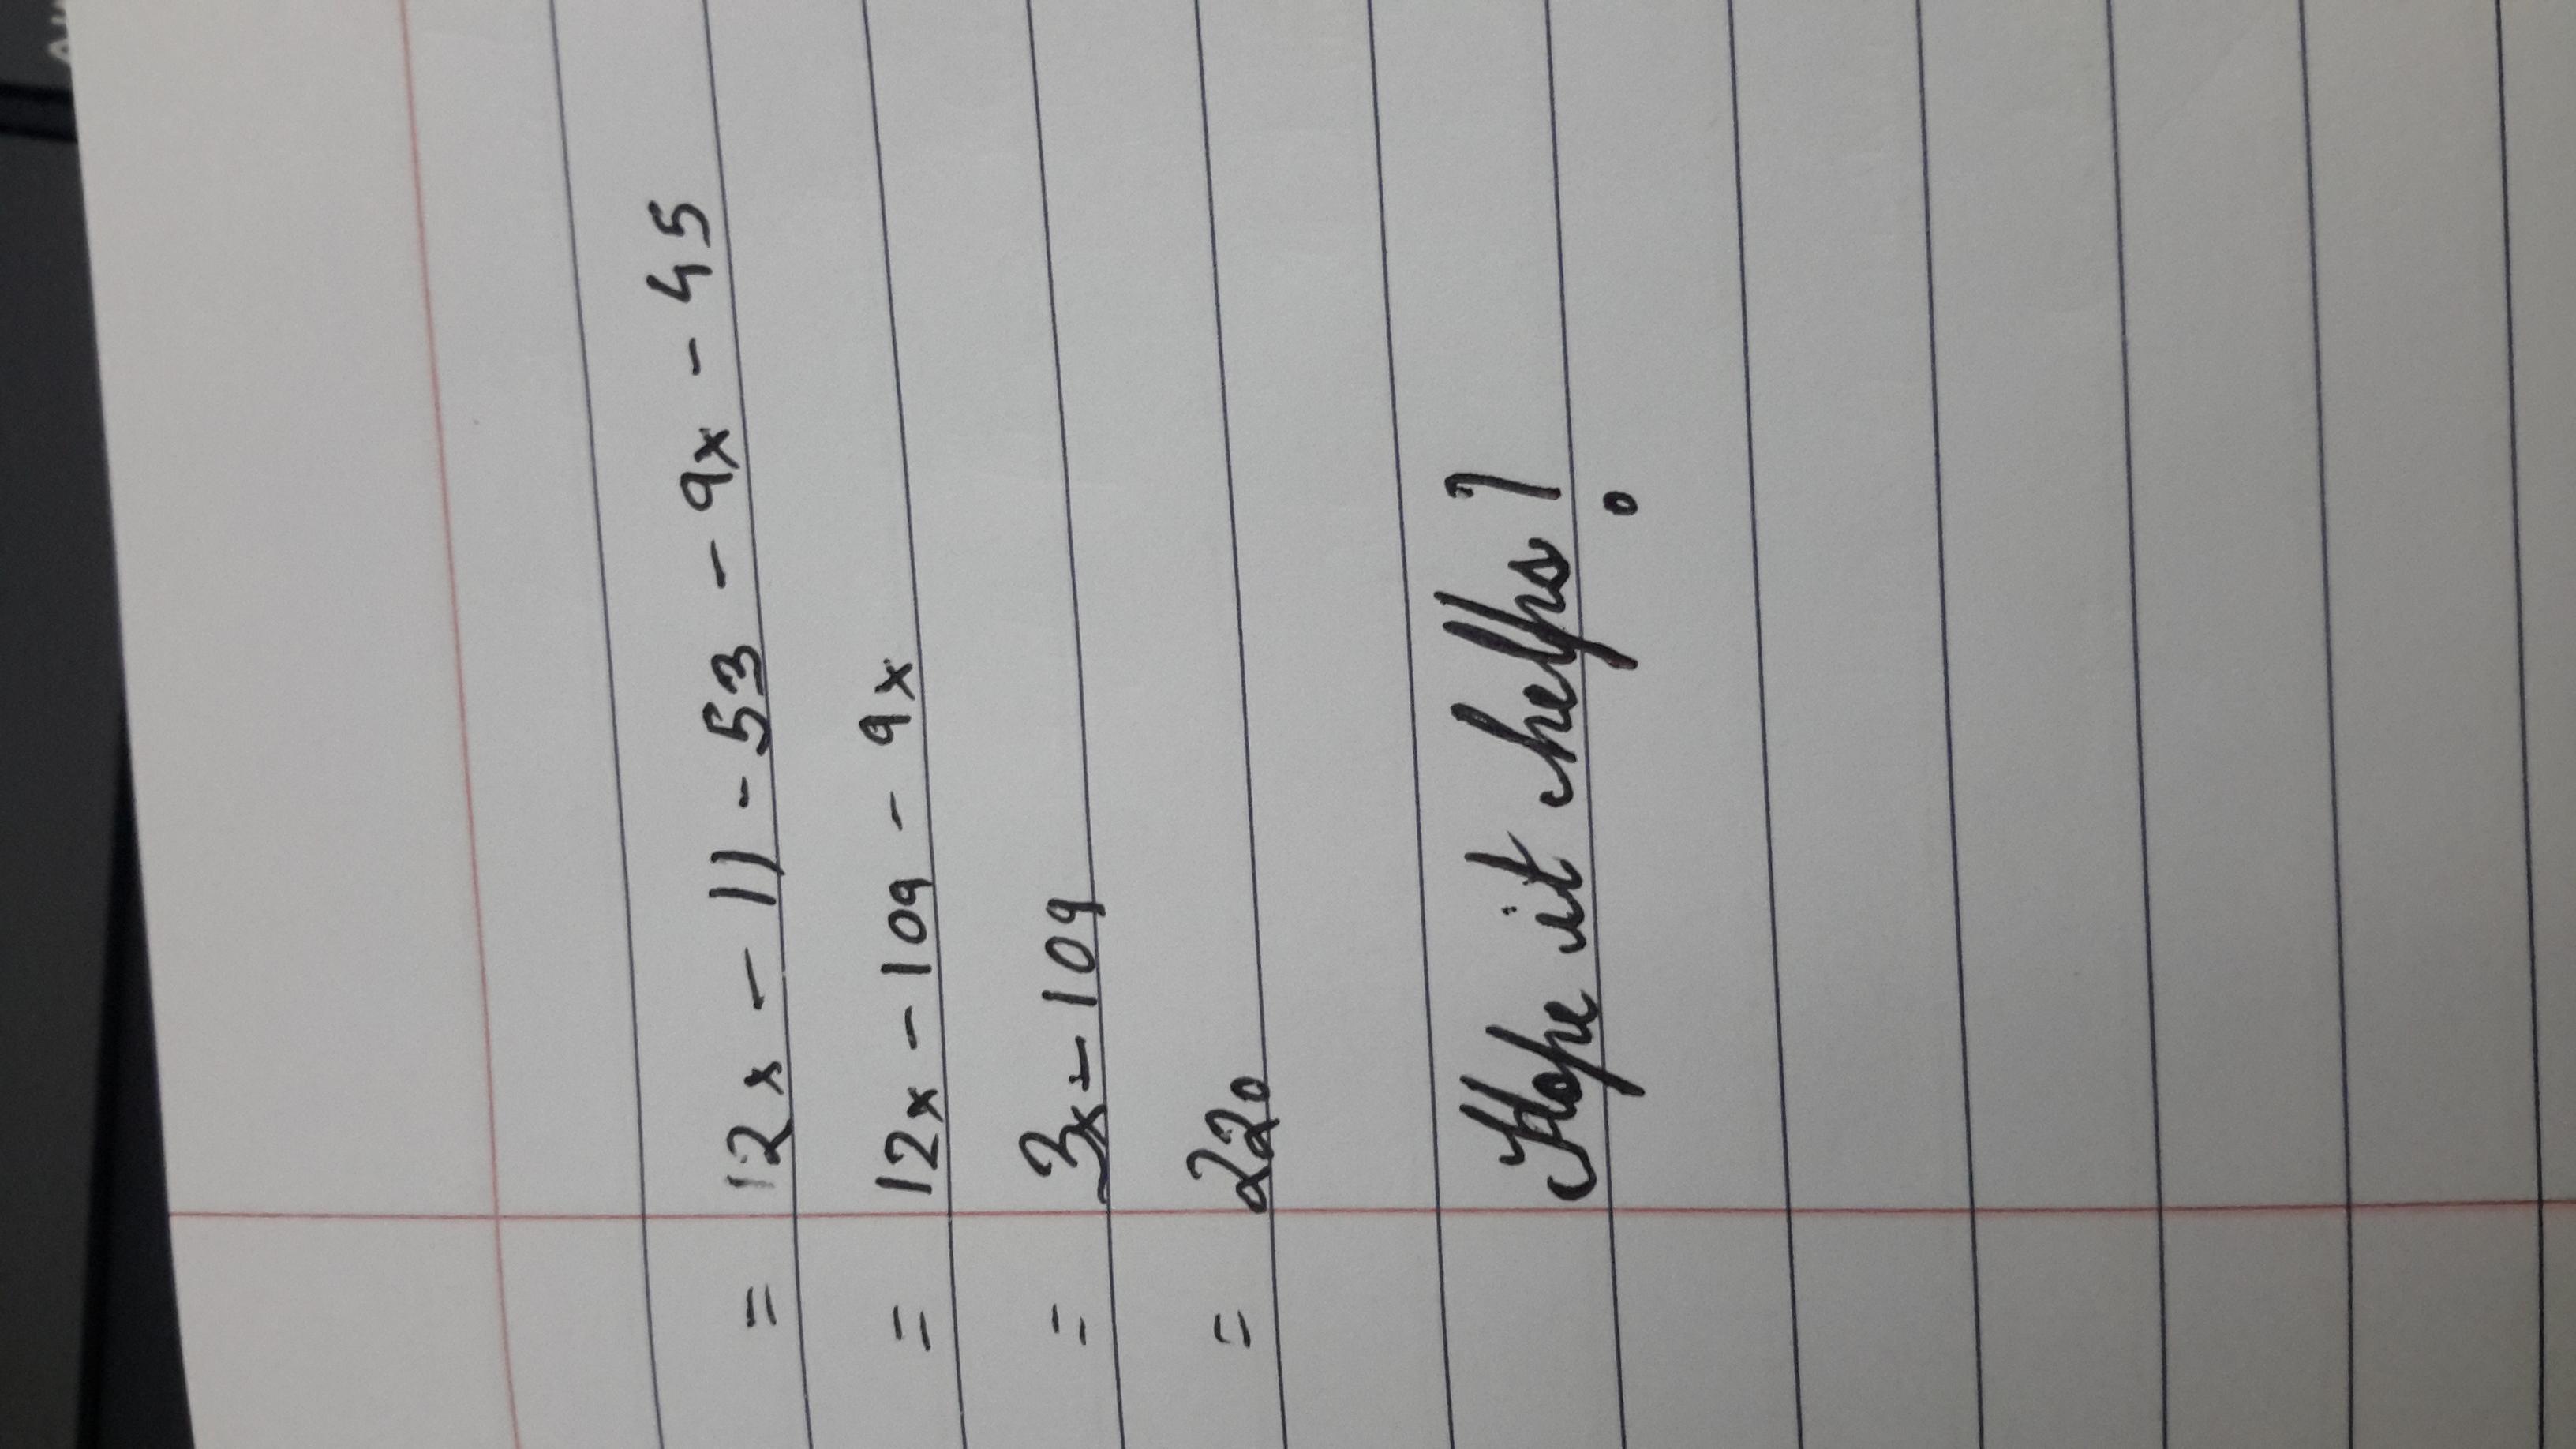 = 12x - 11 - 53 - 9x - 45
= 12x - 109 - 9x
= 3x - 109
= 220
Hope it helps!